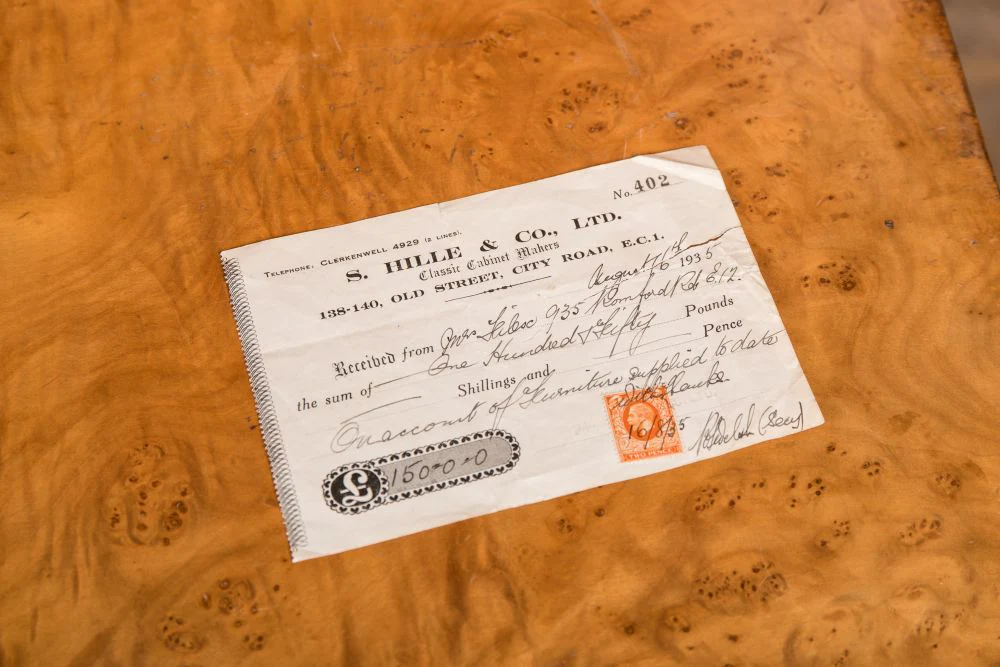 No. 402
TELEPHONE, CLERKENWELL 4929 (2 LINES).
S. HILLE & CO., LTD.
Classic Cabinet Makers
138-140, OLD STREET, CITY ROAD, E.C.1.
August 16th 1935
Received from Mrs 935 Romford Rd E.12.
the sum of One Hundred & Fifty Pounds
Shillings and Pence
On account of Furniture supplied to date
with thanks
£ 150-0-0
16/8/35
TWO PENCE
(Secy)